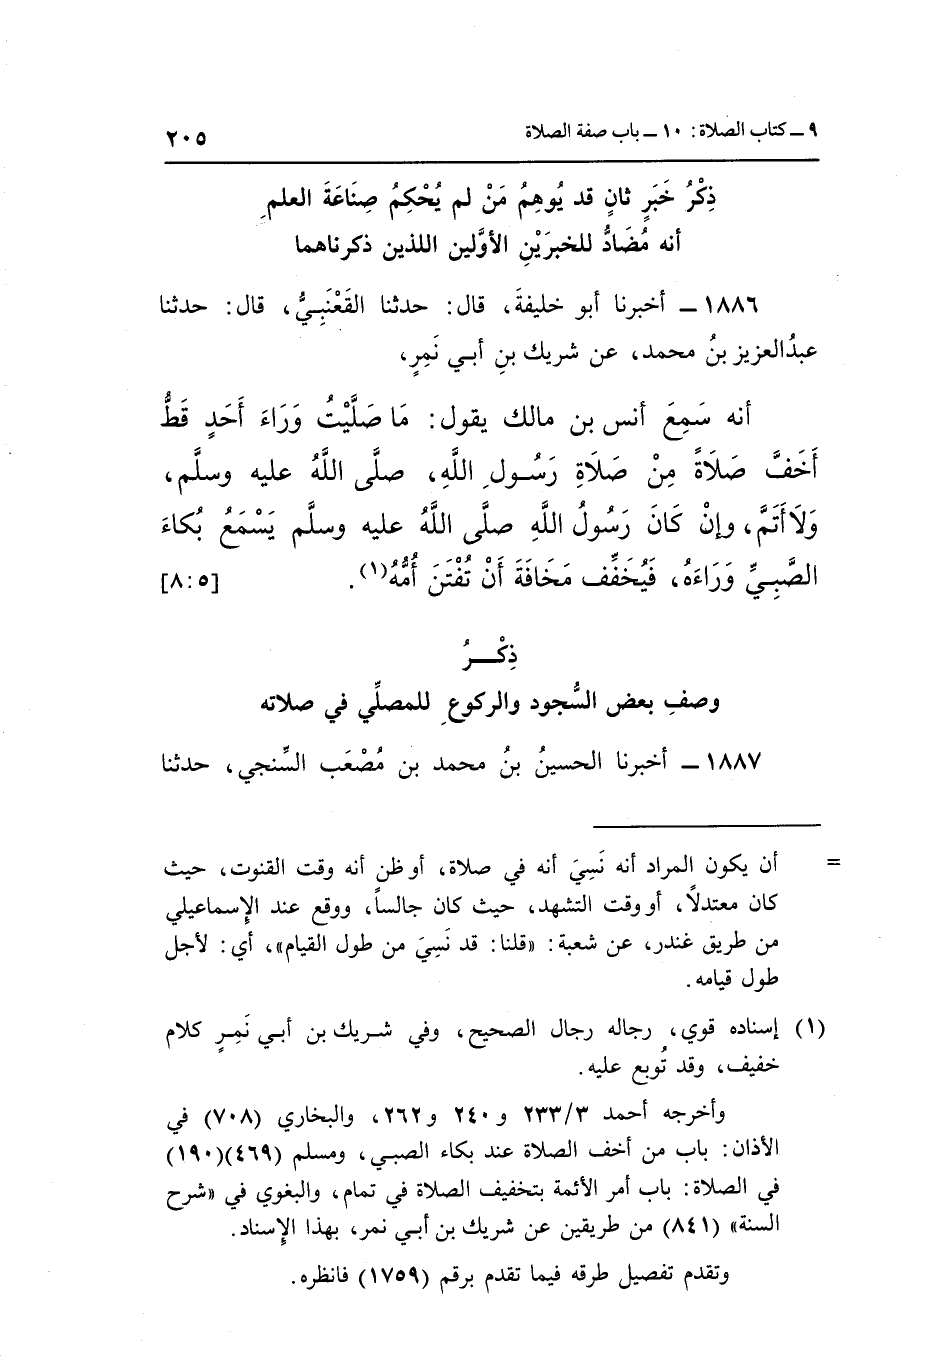 ٩ ــ كتاب الصلاة: ١٠ ــ باب صفة الصلاة ٢٠٥
ذِكْرُ خَبَرٍ ثانٍ قد يُوهِمُ مَنْ لم يُحْكِمُ صِنَاعَةَ العلمِ
أنه مُضَادٌّ للخبرَيْنِ الأوَّلين اللذين ذكرناهما
١٨٨٦ ــ أخبرنا أبو خليفةَ، قال: حدثنا القَعْنَبِيُّ، قال: حدثنا
عبدُالعزيز بنُ محمد، عن شريك بنِ أبي نَمِرٍ،
أنه سَمِعَ أنس بن مالك يقول: مَا صَلَّيْتُ وَرَاءَ أَحَدٍ قَطُّ
أَخَفَّ صَلَاةً مِنْ صَلَاةِ رَسُولِ اللَّهِ، صلَّى اللَّهُ عليه وسلَّم،
وَلَا أَتَمَّ، وإنْ كَانَ رَسُولُ اللَّهِ صلَّى اللَّهُ عليه وسلَّم يَسْمَعُ بُكاءَ
الصَّبِيِّ وَرَاءَهُ، فَيُخَفِّف مَخَافَةَ أَنْ تُفْتَنَ أُمُّهُ(١). [٨:٥]
ذِكْـــرُ
وصفِ بعض السُّجود والركوعِ للمصلِّي في صلاته
١٨٨٧ ــ أخبرنا الحسينُ بنُ محمد بن مُصْعَب السِّنجي، حدثنا
= أن يكون المراد أنه نَسِيَ أنه في صلاة، أو ظن أنه وقت القنوت، حيث
كان معتدلاً، أو وقت التشهد، حيث كان جالساً، ووقع عند الإسماعيلي
من طريق غندر، عن شعبة: «قلنا: قد نَسِيَ من طول القيام»، أي: لأجل
طول قيامه.
(١) إسناده قوي، رجاله رجال الصحيح، وفي شريك بن أبي نَمِرٍ كلام
خفيف، وقد تُوبع عليه.
وأخرجه أحمد ٢٣٣/٣ و ٢٤٠ و ٢٦٢، والبخاري (٧٠٨) في
الأذان: باب من أخف الصلاة عند بكاء الصبي، ومسلم (٤٦٩)(١٩٠)
في الصلاة: باب أمر الأئمة بتخفيف الصلاة في تمام، والبغوي في «شرح
السنة» (٨٤١) من طريقين عن شريك بن أبي نمر، بهذا الإسناد.
وتقدم تفصيل طرقه فيما تقدم برقم (١٧٥٩) فانظره.